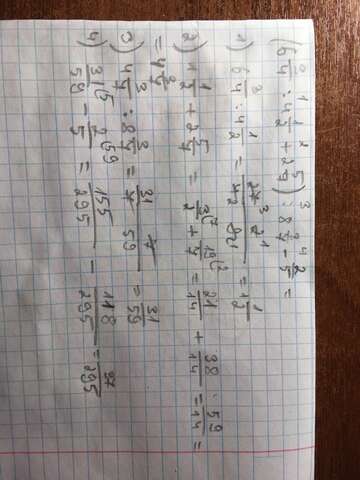 (6 3/4 : 4 1/2 + 2 5/7) : 8 3/7 - 2/5 =
1) 6 3/4 : 4 1/2 = = 1 1/2
2) 1 1/2 + 2 5/7 = 3/2 + 19/7 = 21/14 + 38/14 = 59/14 =
= 4 3/7
3) 4 3/7 : 8 3/7 = 31/7 7/59 = 31/59
4) 31/59 - 2/5 = 155/295 - 118/295 = 37/295